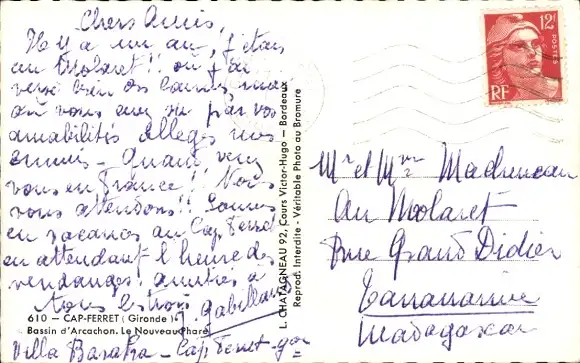 Chers Amis,
Il y a un an, j'étais
au Molaret!! où j'ai
versé bien des larmes mais
où vous avez su par vos
amabilités alléger mes
ennuis - Quand venez
vous en France!! Nous
vous attendons!! Sommes
en vacances au Cap Ferret
en attendant l'heure des
vendanges! amitiés à
tous les trois
Gabillaud
610 - CAP-FERRET (Gironde)
Bassin d'Arcachon. Le Nouveau Phare
Villa Baraka - Cap Ferret - Gde
L. CHATAGNEAU 92, Cours Victor-Hugo - Bordeaux
Reprod. Interdite - Véritable Photo au Bromure
12F
POSTES
RF
Mr et Mme
au Molaret
Rue Grand Didier
Tananarive
Madagascar